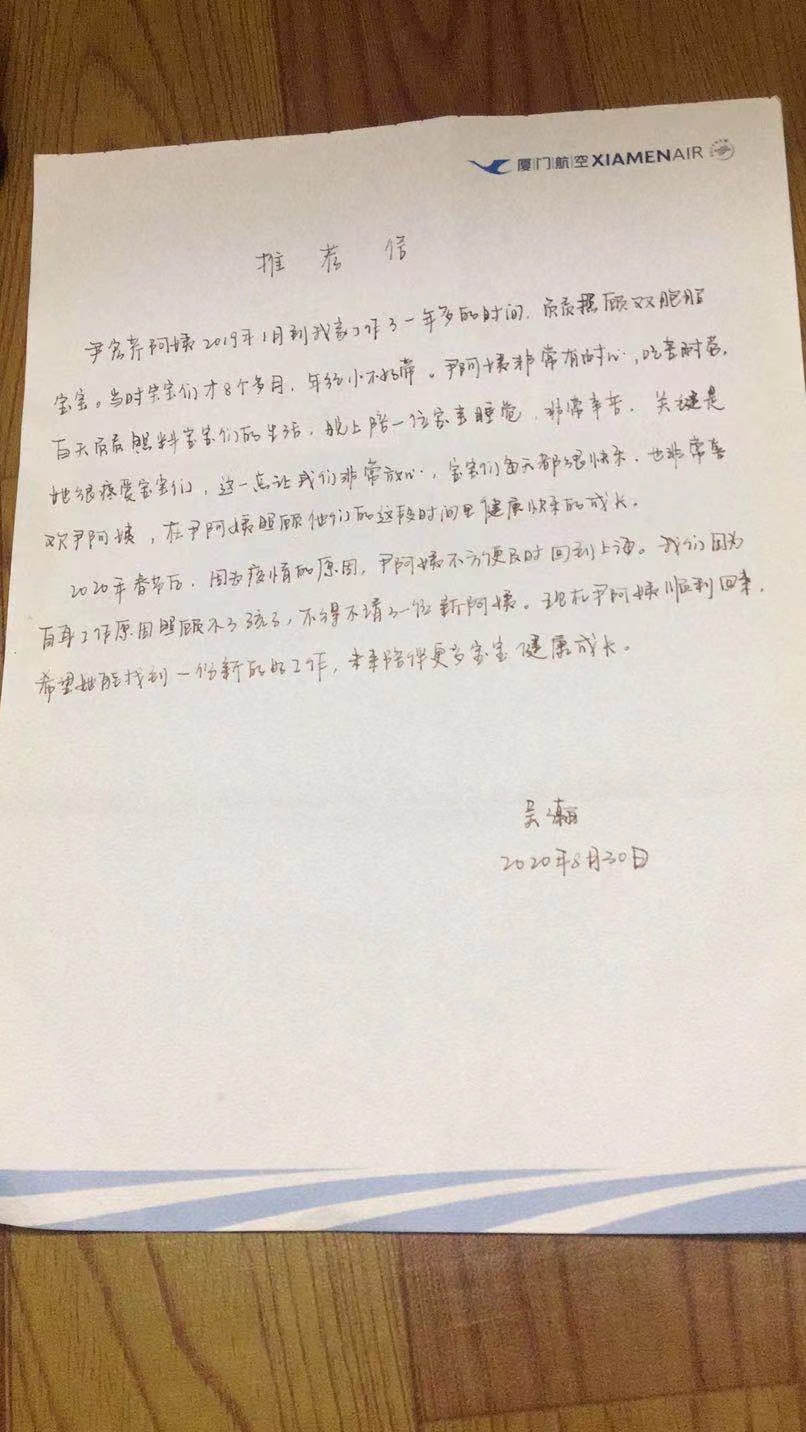 厦门航空 XIAMENAIR
推荐信
尹宏弃阿姨2019年1月到我家工作了一年多的时间，负责照顾双胞胎
宝宝。当时宝宝们才8个多月，年纪小不好带。尹阿姨非常有耐心，吃苦耐劳，
白天负责照料宝宝们的生活，晚上陪一位宝宝睡觉，非常辛苦。关键是
她很疼爱宝宝们，这一点让我们非常放心，宝宝们每天都很快乐，也非常喜
欢尹阿姨，在尹阿姨照顾他们的这段时间里健康快乐的成长。
2020年春节后，因为疫情的原因，尹阿姨不方便及时回到上海。我们因为
自身工作原因照顾不了孩子，不得不请了一位新阿姨。现在尹阿姨顺利回来，
希望她能找到一份新的好工作，未来陪伴更多宝宝健康成长。
吴
2020年8月30日